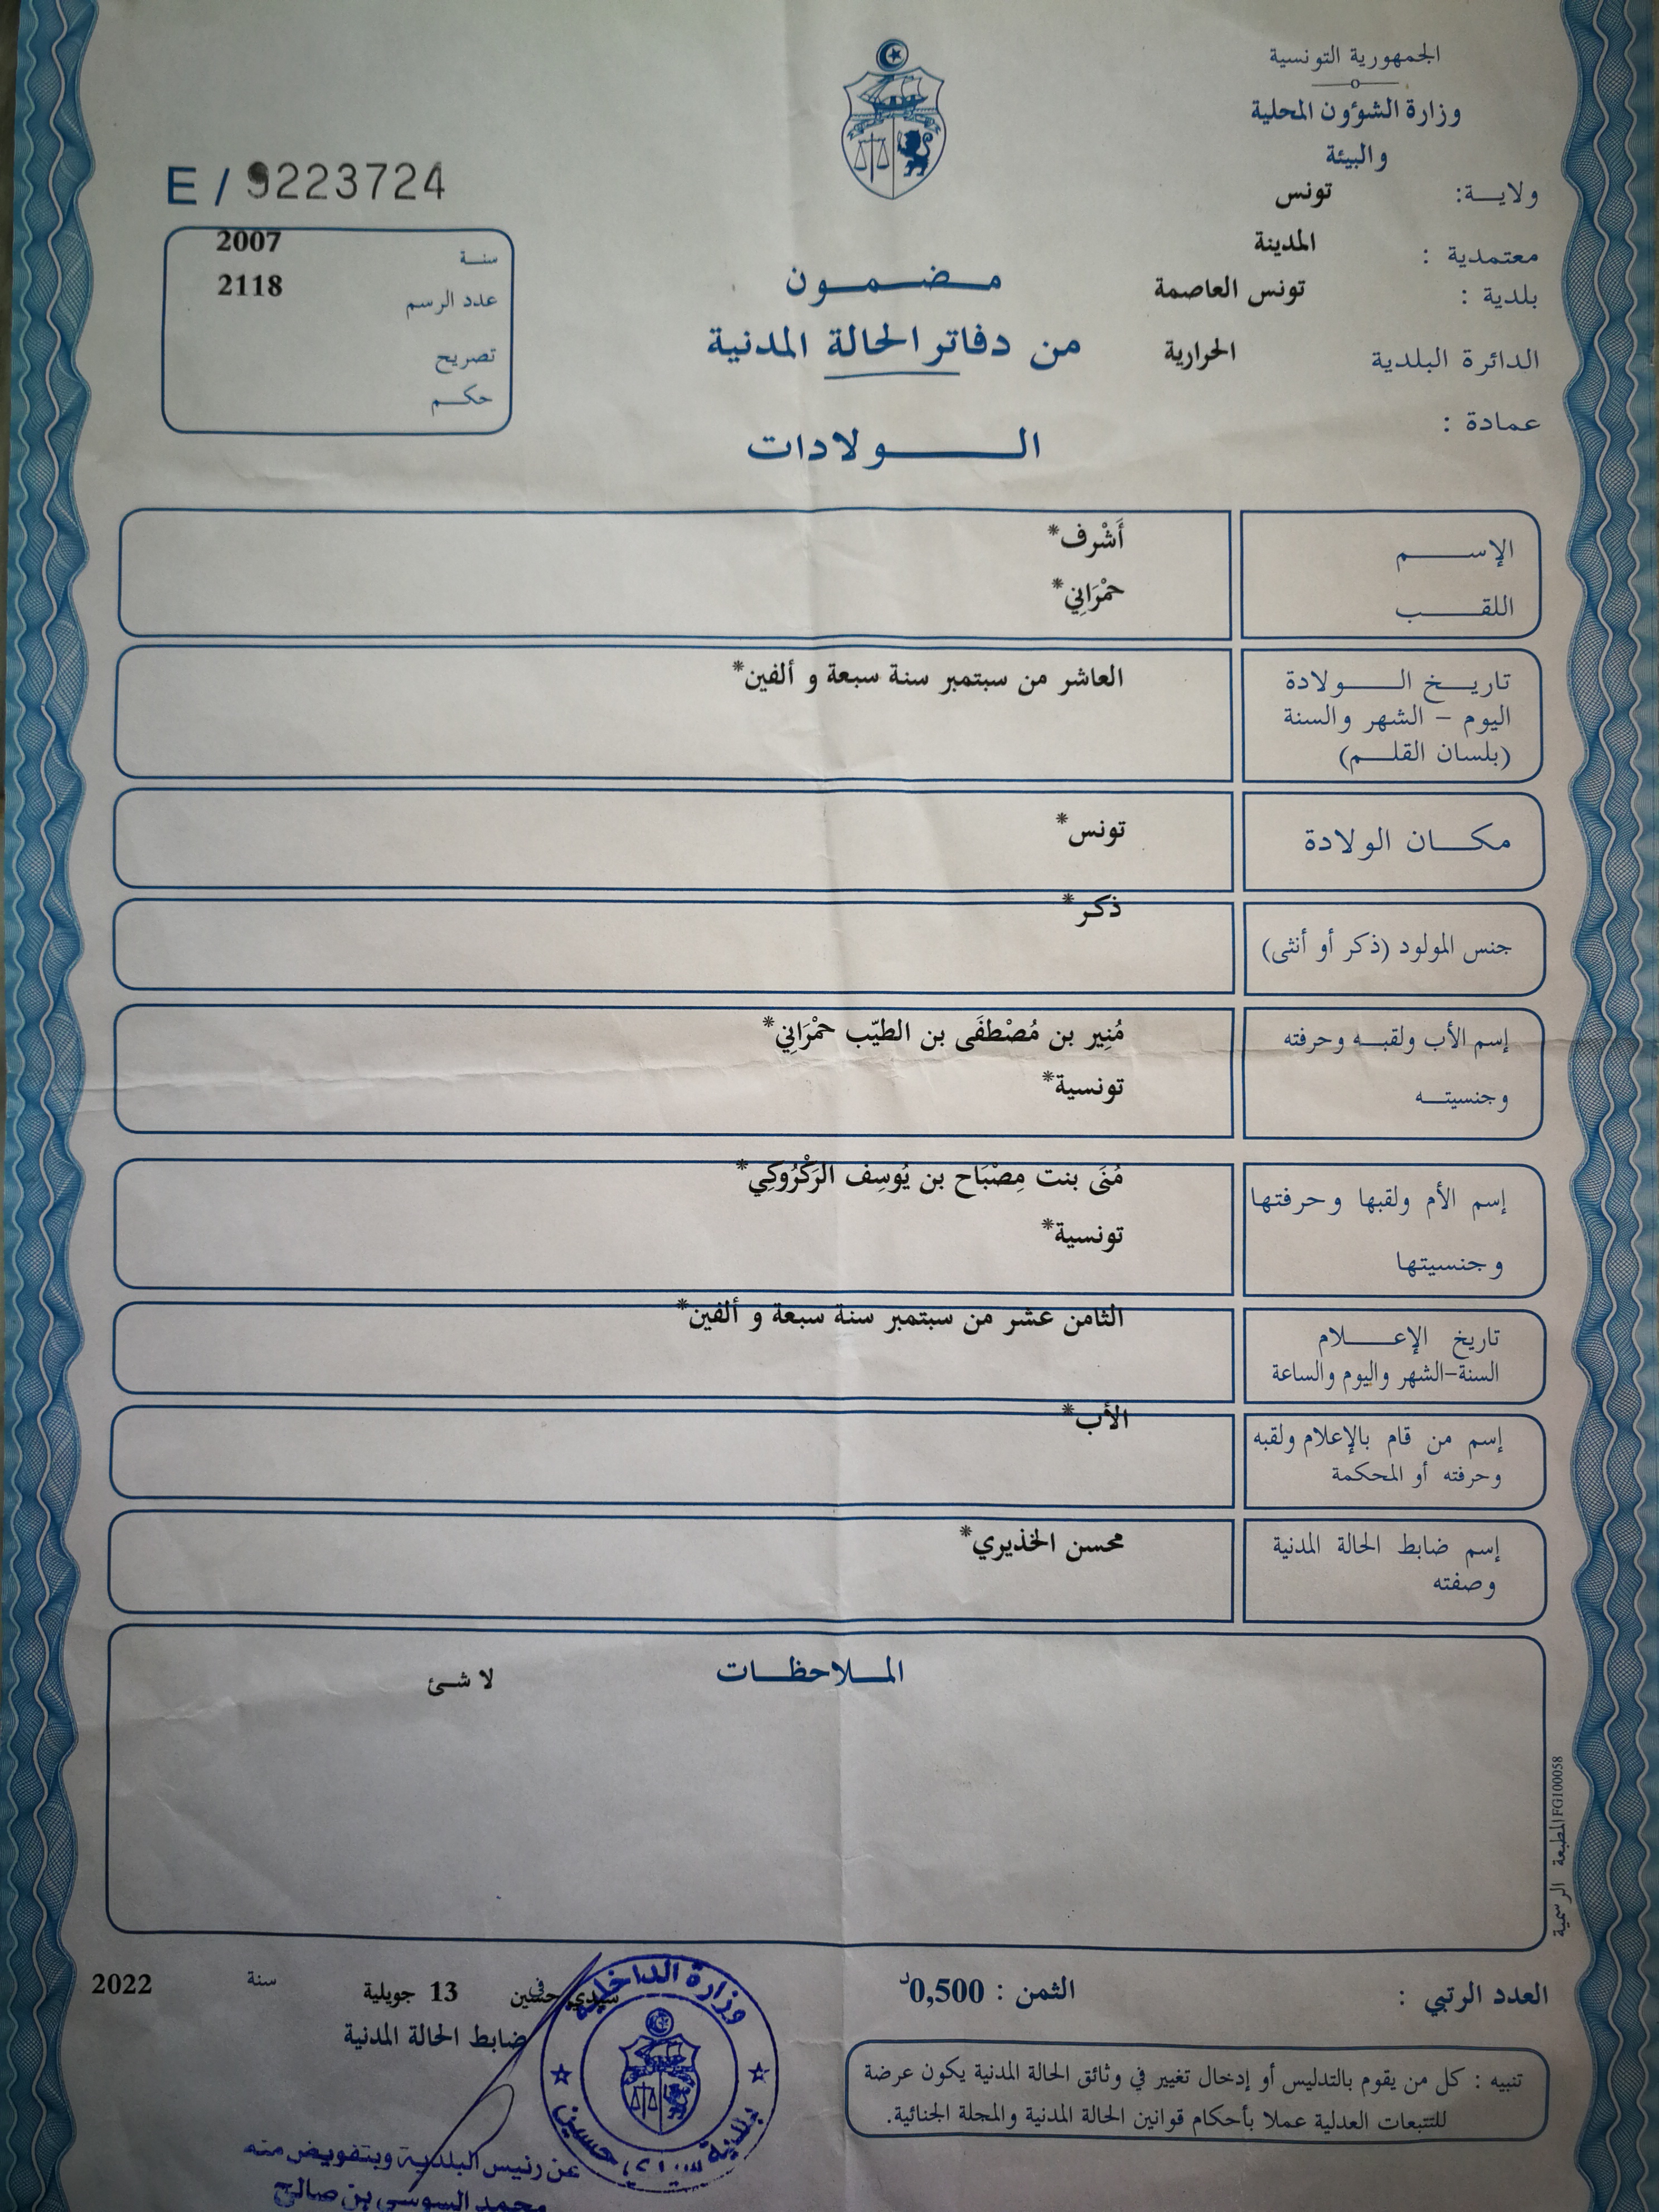 الجمهورية التونسية
وزارة الشؤون المحلية
والبيئة
ولايـــة: تونس
معتمدية : المدينة
بلدية : تونس العاصمة
الدائرة البلدية الحرارية
عمادة :
مـــضـــمـــون
من دفاتر الحالة المدنية
الـــــولادات
E / 9223724
سنــة 2007
عدد الرسم 2118
تصريح
حكــم
الإســــــم أَشْرف*
اللقــــــب حمْرَانِي*
تاريـــخ الـــــولادة العاشر من سبتمبر سنة سبعة و ألفين*
اليوم - الشهر والسنة
(بلسان القلـــم)
مكـــان الولادة تونس*
جنس المولود (ذكر أو أنثى) ذكر*
إسم الأب ولقبــه وحرفته مُنِير بن مُصْطفَى بن الطيّب حمْرَانِي*
وجنسيتـــه تونسية*
إسم الأم ولقبها وحرفتها مُنَى بنت مِصْبَاح بن يُوسِف الرَكْرُوكِي*
وجنسيتها تونسية*
تاريخ الإعـــــلام الثامن عشر من سبتمبر سنة سبعة و ألفين*
السنة-الشهر واليوم والساعة
إسم من قام بالإعلام ولقبه الأب*
وحرفته أو المحكمة
إسم ضابط الحالة المدنية محسن الخذيري*
وصفته
المـــلاحظـــات
لا شئ
المطبعة الرسمية FG100058
العدد الرتبي :
الثمن : 0,500د
سيدي حسين في 13 جويلية سنة 2022
ضابط الحالة المدنية
وزارة الداخلية
بلدية سيدي حسين
عن رئيس البلدية وبتفويض منه
محمد السوسي بن صالح
تنبيه : كل من يقوم بالتدليس أو إدخال تغيير في وثائق الحالة المدنية يكون عرضة
للتتبعات العدلية عملا بأحكام قوانين الحالة المدنية والمجلة الجنائية.